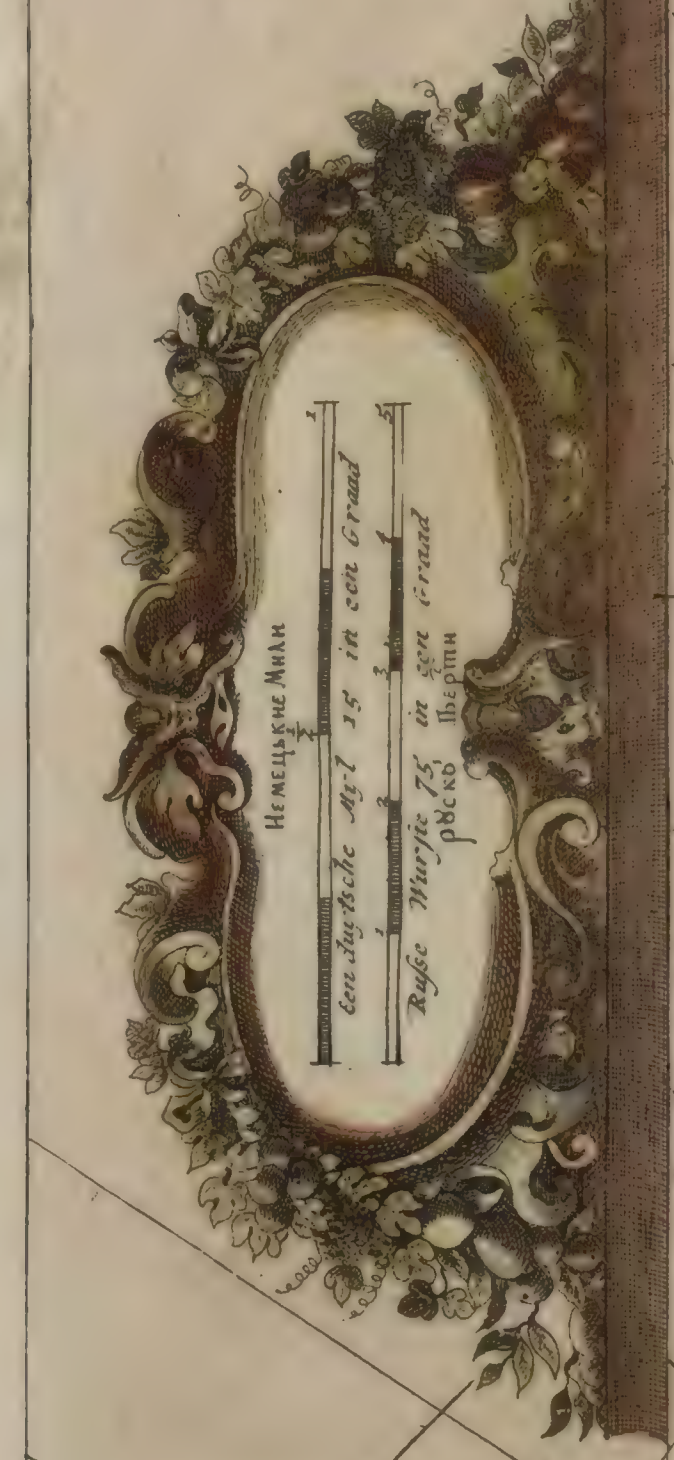 НЕМЕЦЬКИЕ МИЛИ
1/2 1
Een duytsche Myl 15 in een Graad
1 2 3 4 5
Ruſse Wurſte 75 in een Graad
рȣско Пьерти